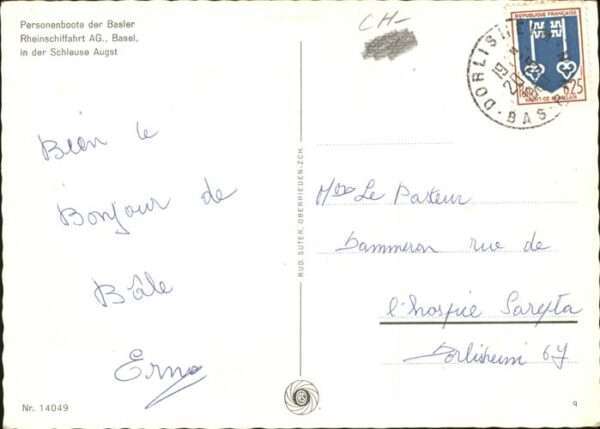 Personenboote der Basler
Rheinschiffahrt AG., Basel,
in der Schleuse Augst
CH-
REPUBLIQUE FRANÇAISE
0,25
MONT-DE-MARSAN
DORLISHEIM
BAS-
Bien le
Bonjour de
Bâle
Erna
RUD. SUTER, OBERRIEDEN-ZCH.
Le Pasteur
Dammeron rue de
l'hospice Sarepta
Dorlisheim 67
Nr. 14049
9